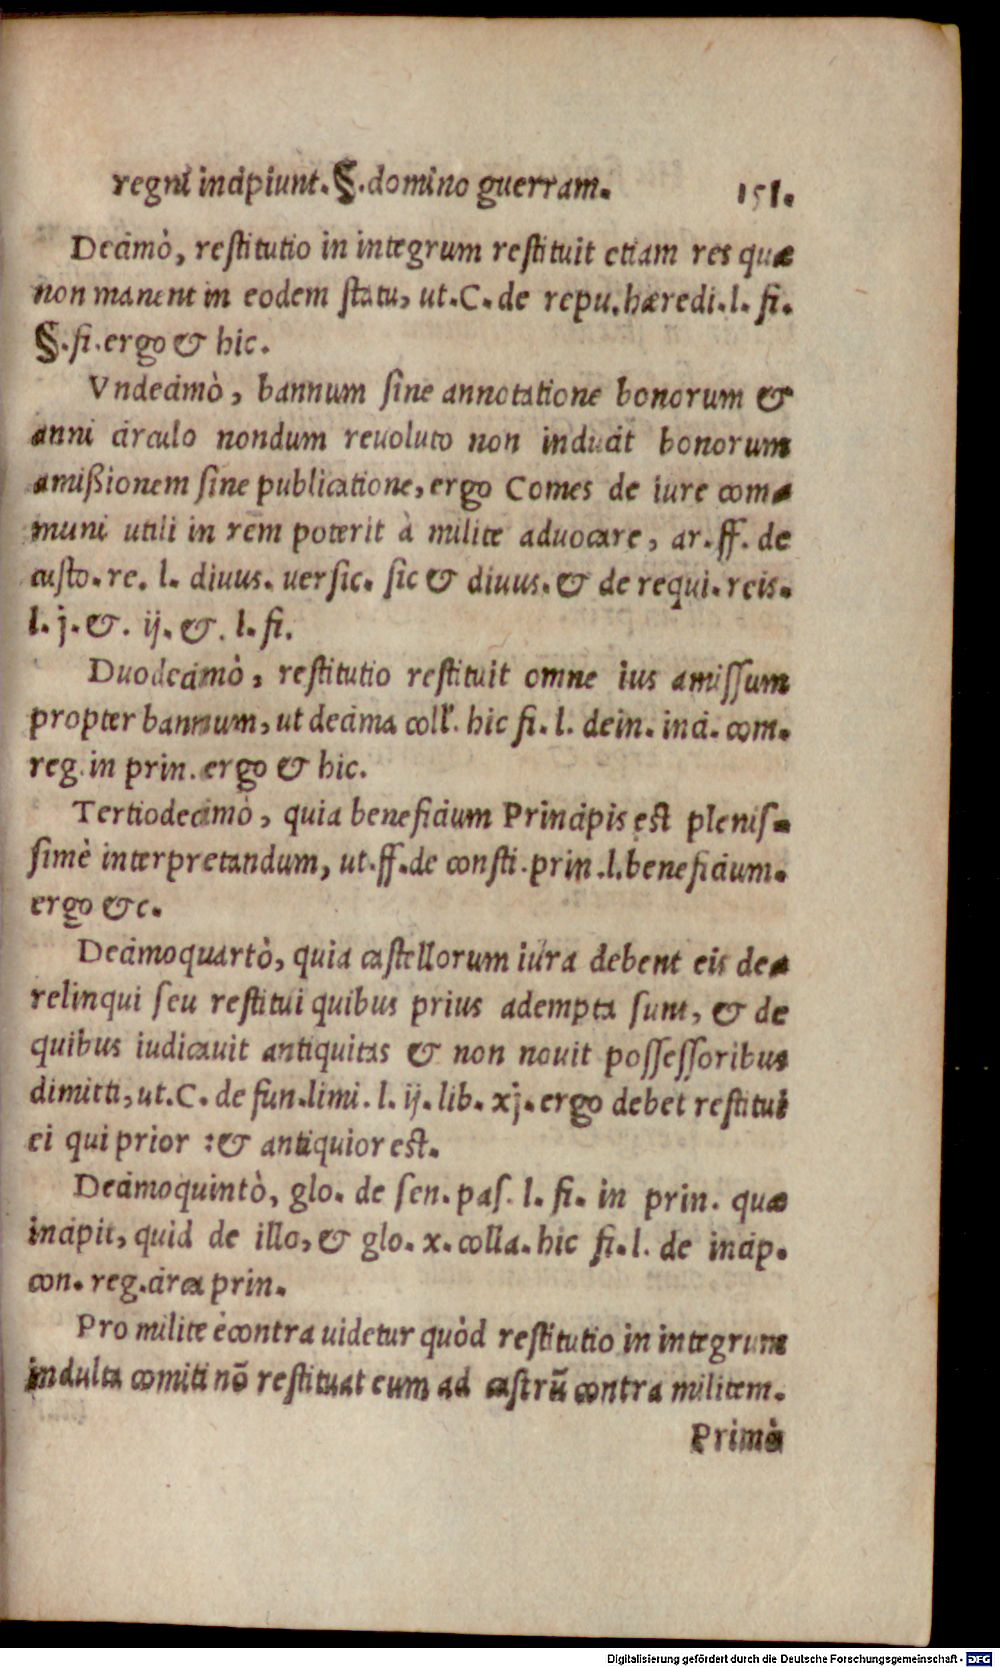 regni incipiunt. §. domino guerram. 151.
Decimò, restitutio in integrum restituit etiam res quæ
non manent in eodem statu, ut. C. de repu. hæredi. l. fi.
§. fi. ergo & hic.
Vndecimò, bannum sine annotatione bonorum &
anni circulo nondum reuoluto non inducit bonorum
amißionem sine publicatione, ergo Comes de iure com-
muni utili in rem poterit à milite aduocare, ar. ff. de
custo. re. l. diuus. uersic. sic & diuus. & de requi. reis.
l. j. &. ij. &. l. fi.
Duodecimò, restitutio restituit omne ius amissum
propter bannum, ut decima coll'. hic fi. l. dein. inci. com.
reg. in prin. ergo & hic.
Tertiodecimò, quia beneficium Principis est plenis-
simè interpretandum, ut. ff. de consti. prin. l. beneficium.
ergo &c.
Decimoquartò, quia castellorum iura debent eis de-
relinqui seu restitui quibus prius adempta sunt, & de
quibus iudicauit antiquitas & non nouit possessoribus
dimitti, ut. C. de fun. limi. l. ij. lib. xj. ergo debet restitui
ei qui prior : & antiquior est.
Decimoquintò, glo. de sen. pas. l. fi. in prin. quæ
incipit, quid de illo, & glo. x. colla. hic fi. l. de incip.
con. reg. circa prin.
Pro milite ècontra uidetur quòd restitutio in integrum
indulta comiti nō restituat eum ad castrū contra militem.
Primò
Digitalisierung gefördert durch die Deutsche Forschungsgemeinschaft - DFG